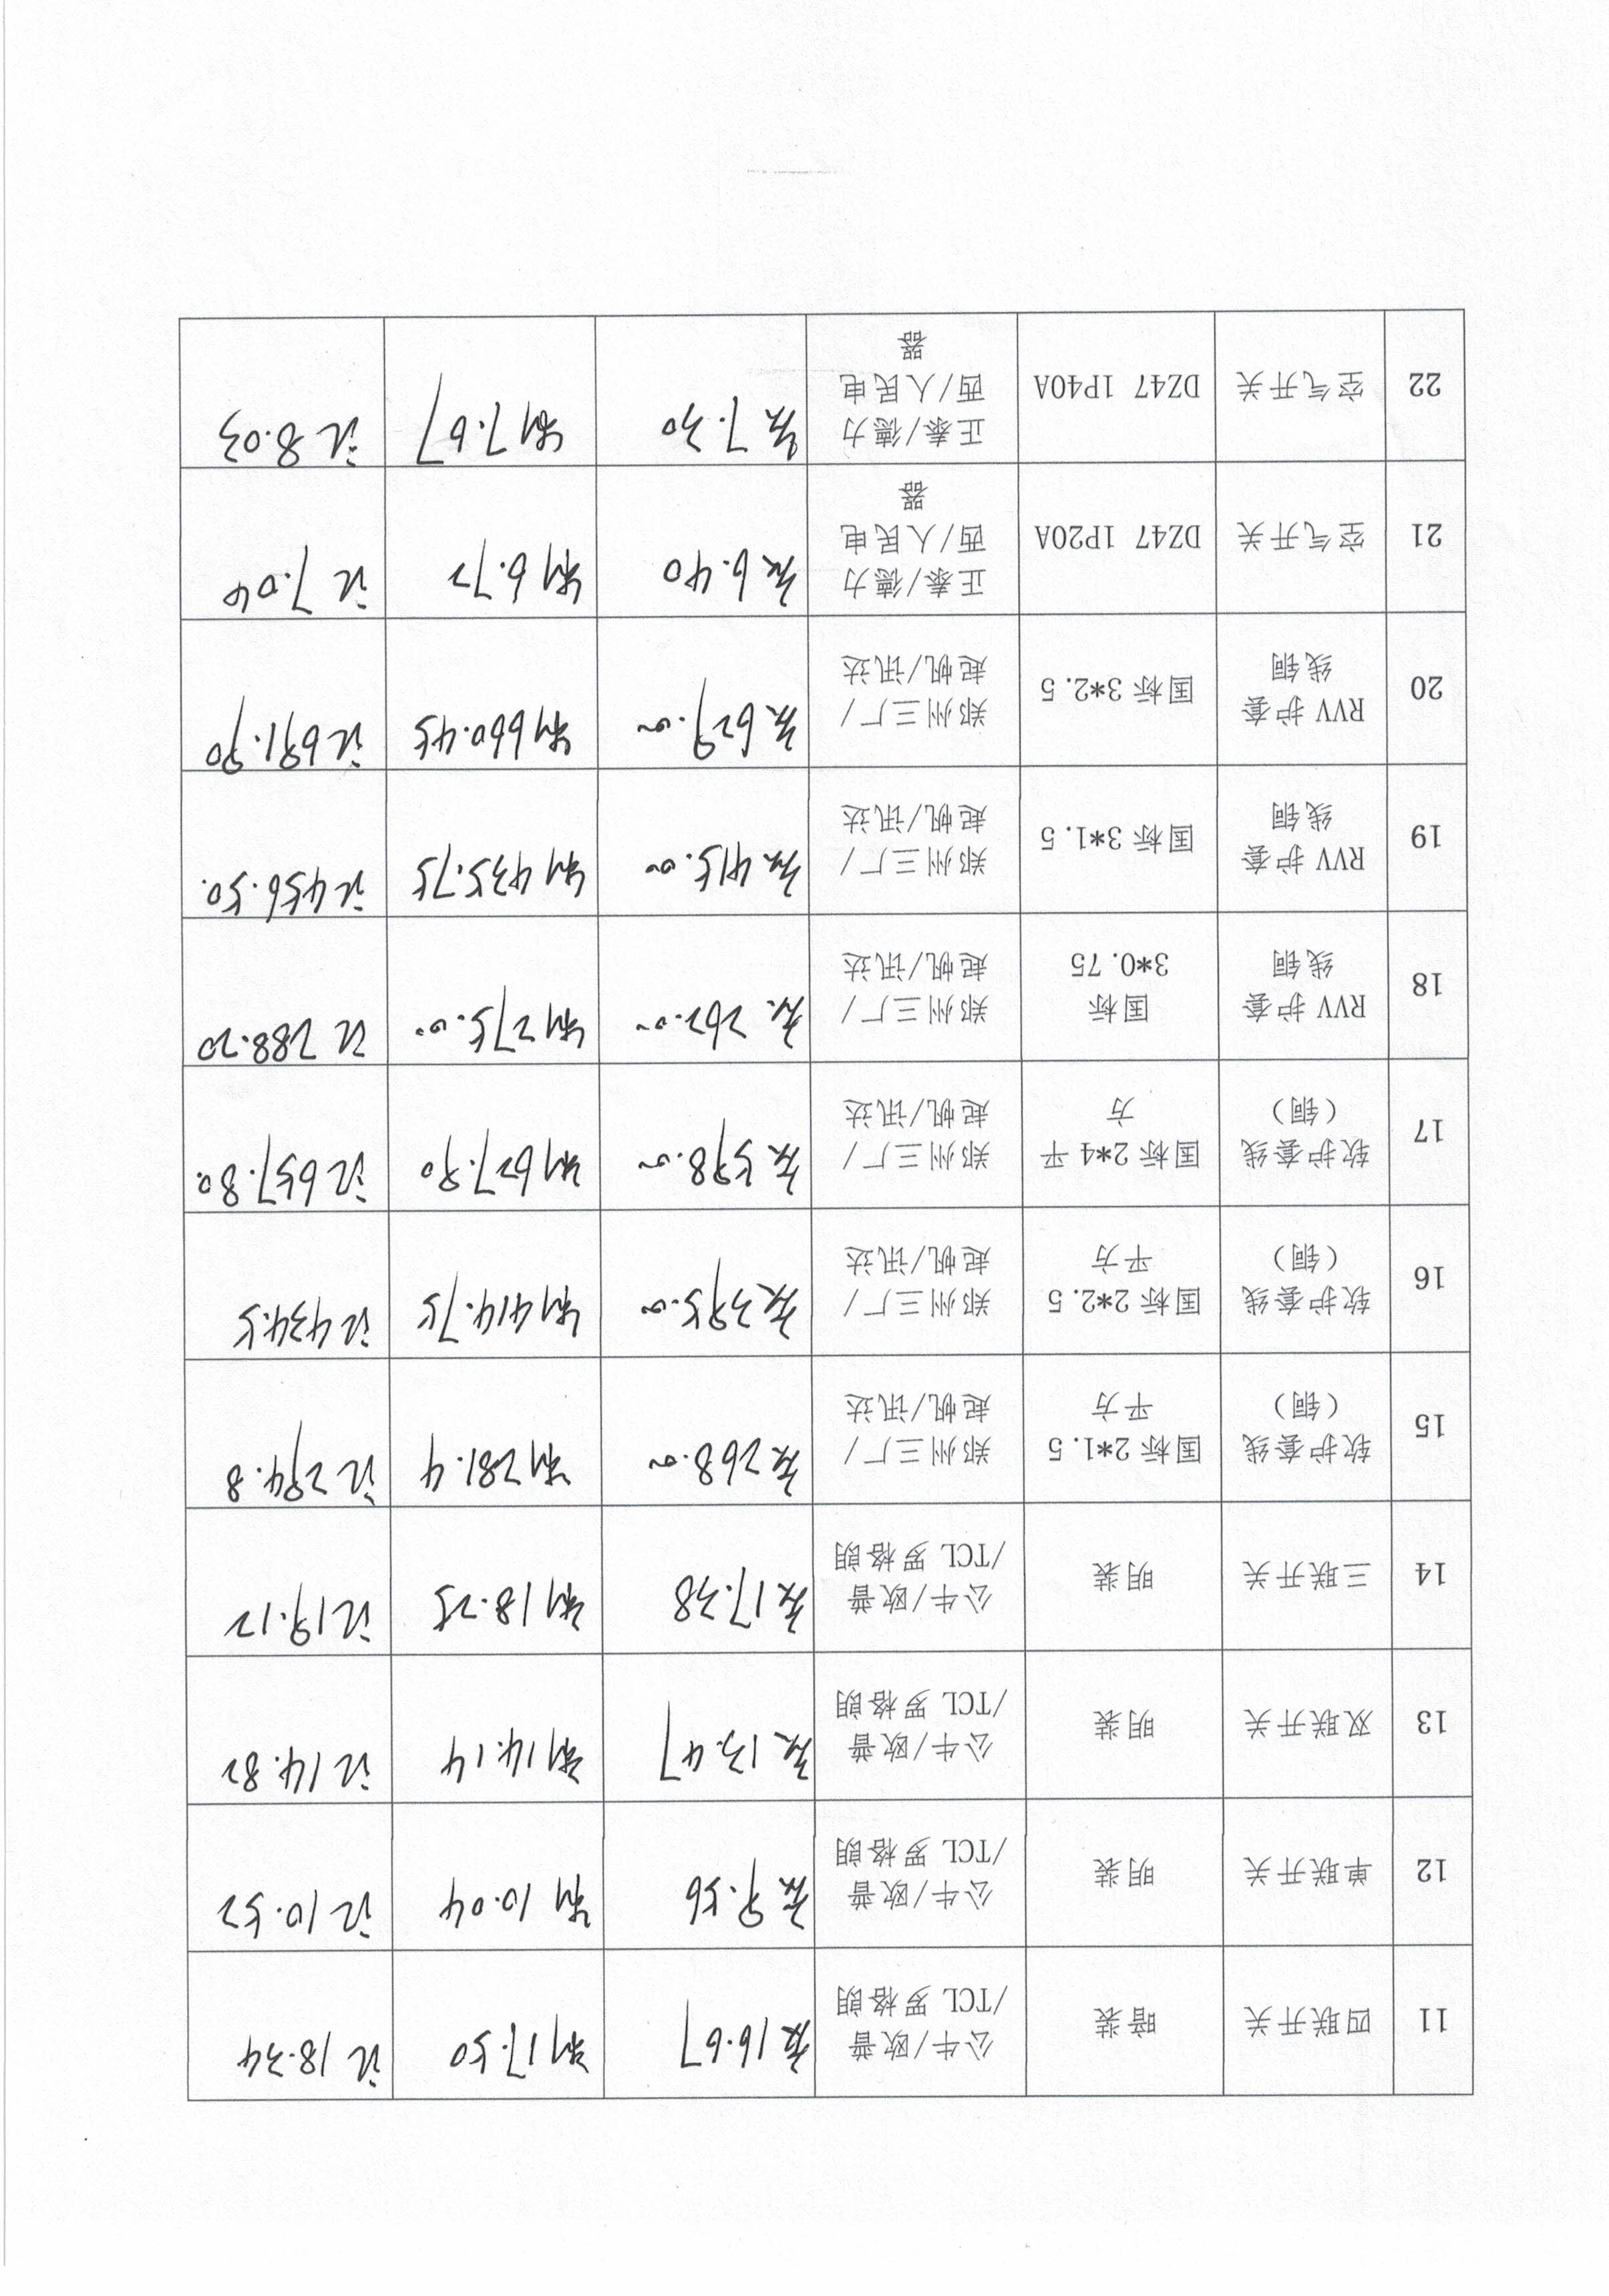 11
四联开关
暗装
公牛/欧普
/TCL 罗格朗
16.67
17.50
18.34
12
单联开关
明装
公牛/欧普
/TCL 罗格朗
9.56
10.04
10.52
13
双联开关
明装
公牛/欧普
/TCL 罗格朗
13.47
14.14
14.82
14
三联开关
明装
公牛/欧普
/TCL 罗格朗
17.38
18.25
19.12
15
软护套线
（铜）
国标 2*1.5
平方
郑州三厂/
起帆/讯达
268.00
281.4
294.8
16
软护套线
（铜）
国标 2*2.5
平方
郑州三厂/
起帆/讯达
395.00
414.75
434.5
17
软护套线
（铜）
国标 2*4 平
方
郑州三厂/
起帆/讯达
598.00
627.90
657.80
18
RVV 护套
线铜
国标
3*0.75
郑州三厂/
起帆/讯达
262.00
275.00
288.20
19
RVV 护套
线铜
国标 3*1.5
郑州三厂/
起帆/讯达
415.00
435.75
456.50
20
RVV 护套
线铜
国标 3*2.5
郑州三厂/
起帆/讯达
629.00
660.45
691.90
21
空气开关
DZ47 1P20A
正泰/德力
西/人民电
器
6.40
6.72
7.04
22
空气开关
DZ47 1P40A
正泰/德力
西/人民电
器
7.30
7.67
8.03